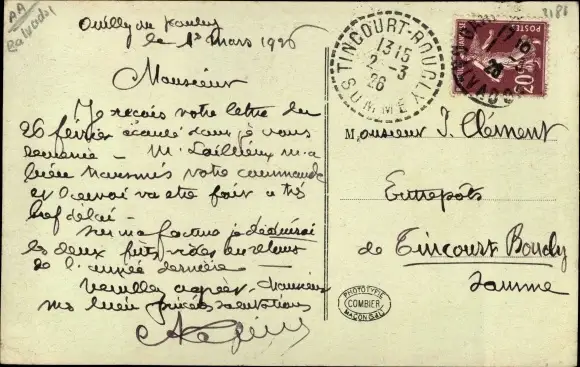 AA
Calvados
3186
Ouilly du
le 1er Mars 1926
Monsieur
Je reçois votre lettre du
26 février écoulé dont je vous
remercie - M. m'a
bien transmis votre commande
et l'envoi va etre fait a très
bref délai -
Sur ma facture je déduirai
les deux futs vides en retour
de l'année dernière -
Veuillez agréer Monsieur
mes bien sincères salutations
TINCOURT-BOUCLY
1315
2-3
26
SOMME
17
26
CALVADOS
20c
Monsieur J. Clément
Entrepôts
de Tincourt Boucly
Somme
PHOTOTYPIE
COMBIER
MACON